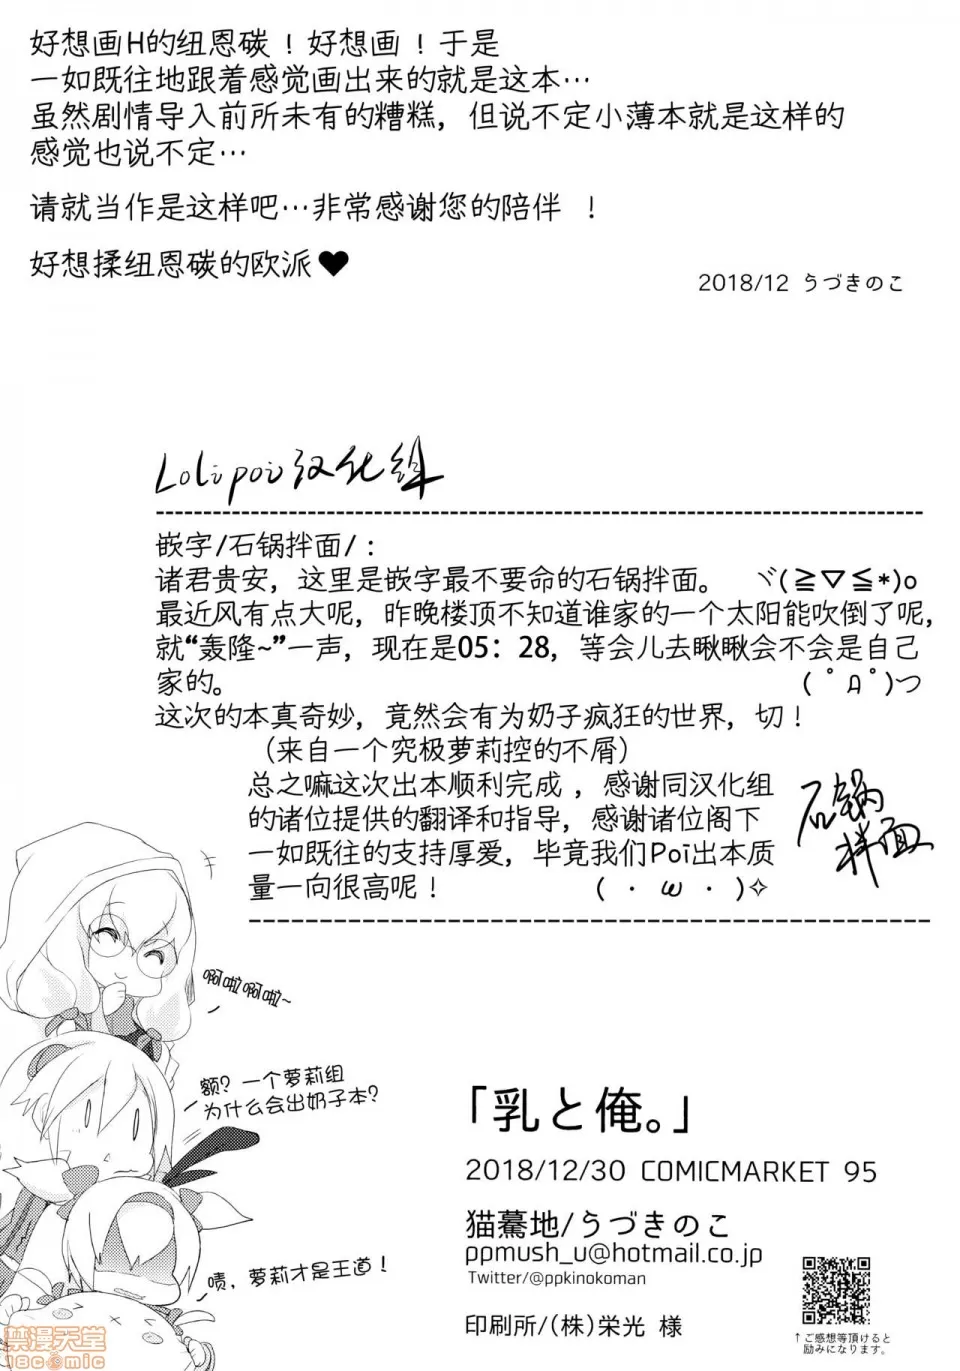 好想画H的纽恩碳！好想画！于是
一如既往地跟着感觉画出来的就是这本…
虽然剧情导入前所未有的糟糕，但说不定小薄本就是这样的
感觉也说不定…
请就当作是这样吧…非常感谢您的陪伴 ！
好想揉纽恩碳的欧派♥
2018/12 うづきのこ
Lolipoi汉化组
嵌字/石锅拌面/：
诸君贵安，这里是嵌字最不要命的石锅拌面。 ヾ(≧▽≦*)o
最近风有点大呢，昨晚楼顶不知道谁家的一个太阳能吹倒了呢，
就“轰隆~”一声，现在是05：28，等会儿去瞅瞅会不会是自己
家的。 ( ﾟДﾟ)つ
这次的本真奇妙，竟然会有为奶子疯狂的世界，切！
（来自一个究极萝莉控的不屑）
总之嘛这次出本顺利完成 ，感谢同汉化组
的诸位提供的翻译和指导，感谢诸位阁下
一如既往的支持厚爱，毕竟我们Poi出本质
量一向很高呢！ (・ω・)✧
石锅
拌面
啊啦啊啦~
额？一个萝莉组
为什么会出奶子本？
啧，萝莉才是王道！
「乳と俺。」
2018/12/30 COMICMARKET 95
猫驀地/うづきのこ
ppmush_u@hotmail.co.jp
Twitter/@ppkinokoman
印刷所/(株)栄光 様
↑ご感想等頂けると
励みになります。
禁漫天堂
18comic